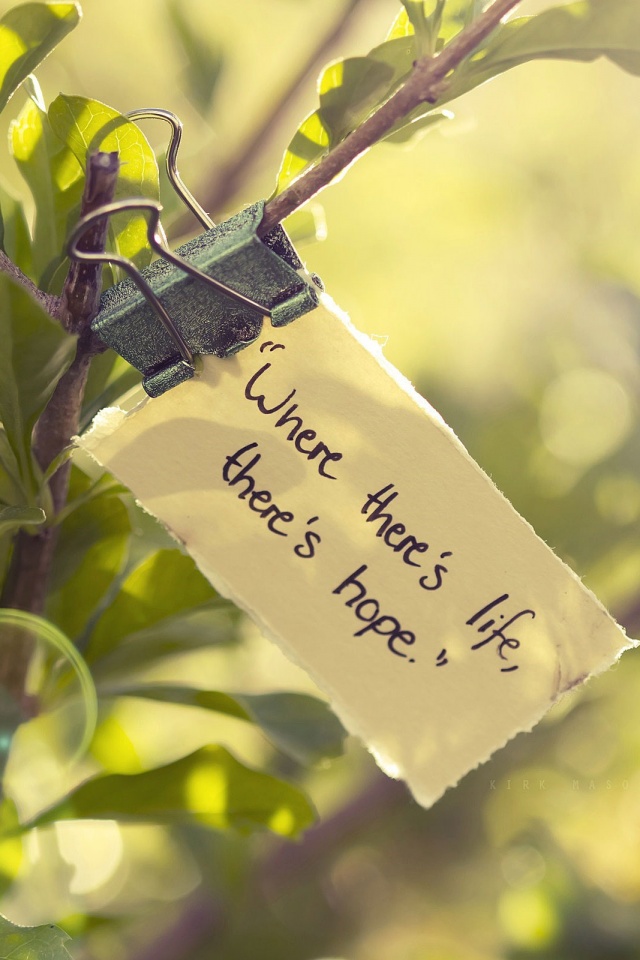 "Where there's life,
there's hope."
KIRK MASO